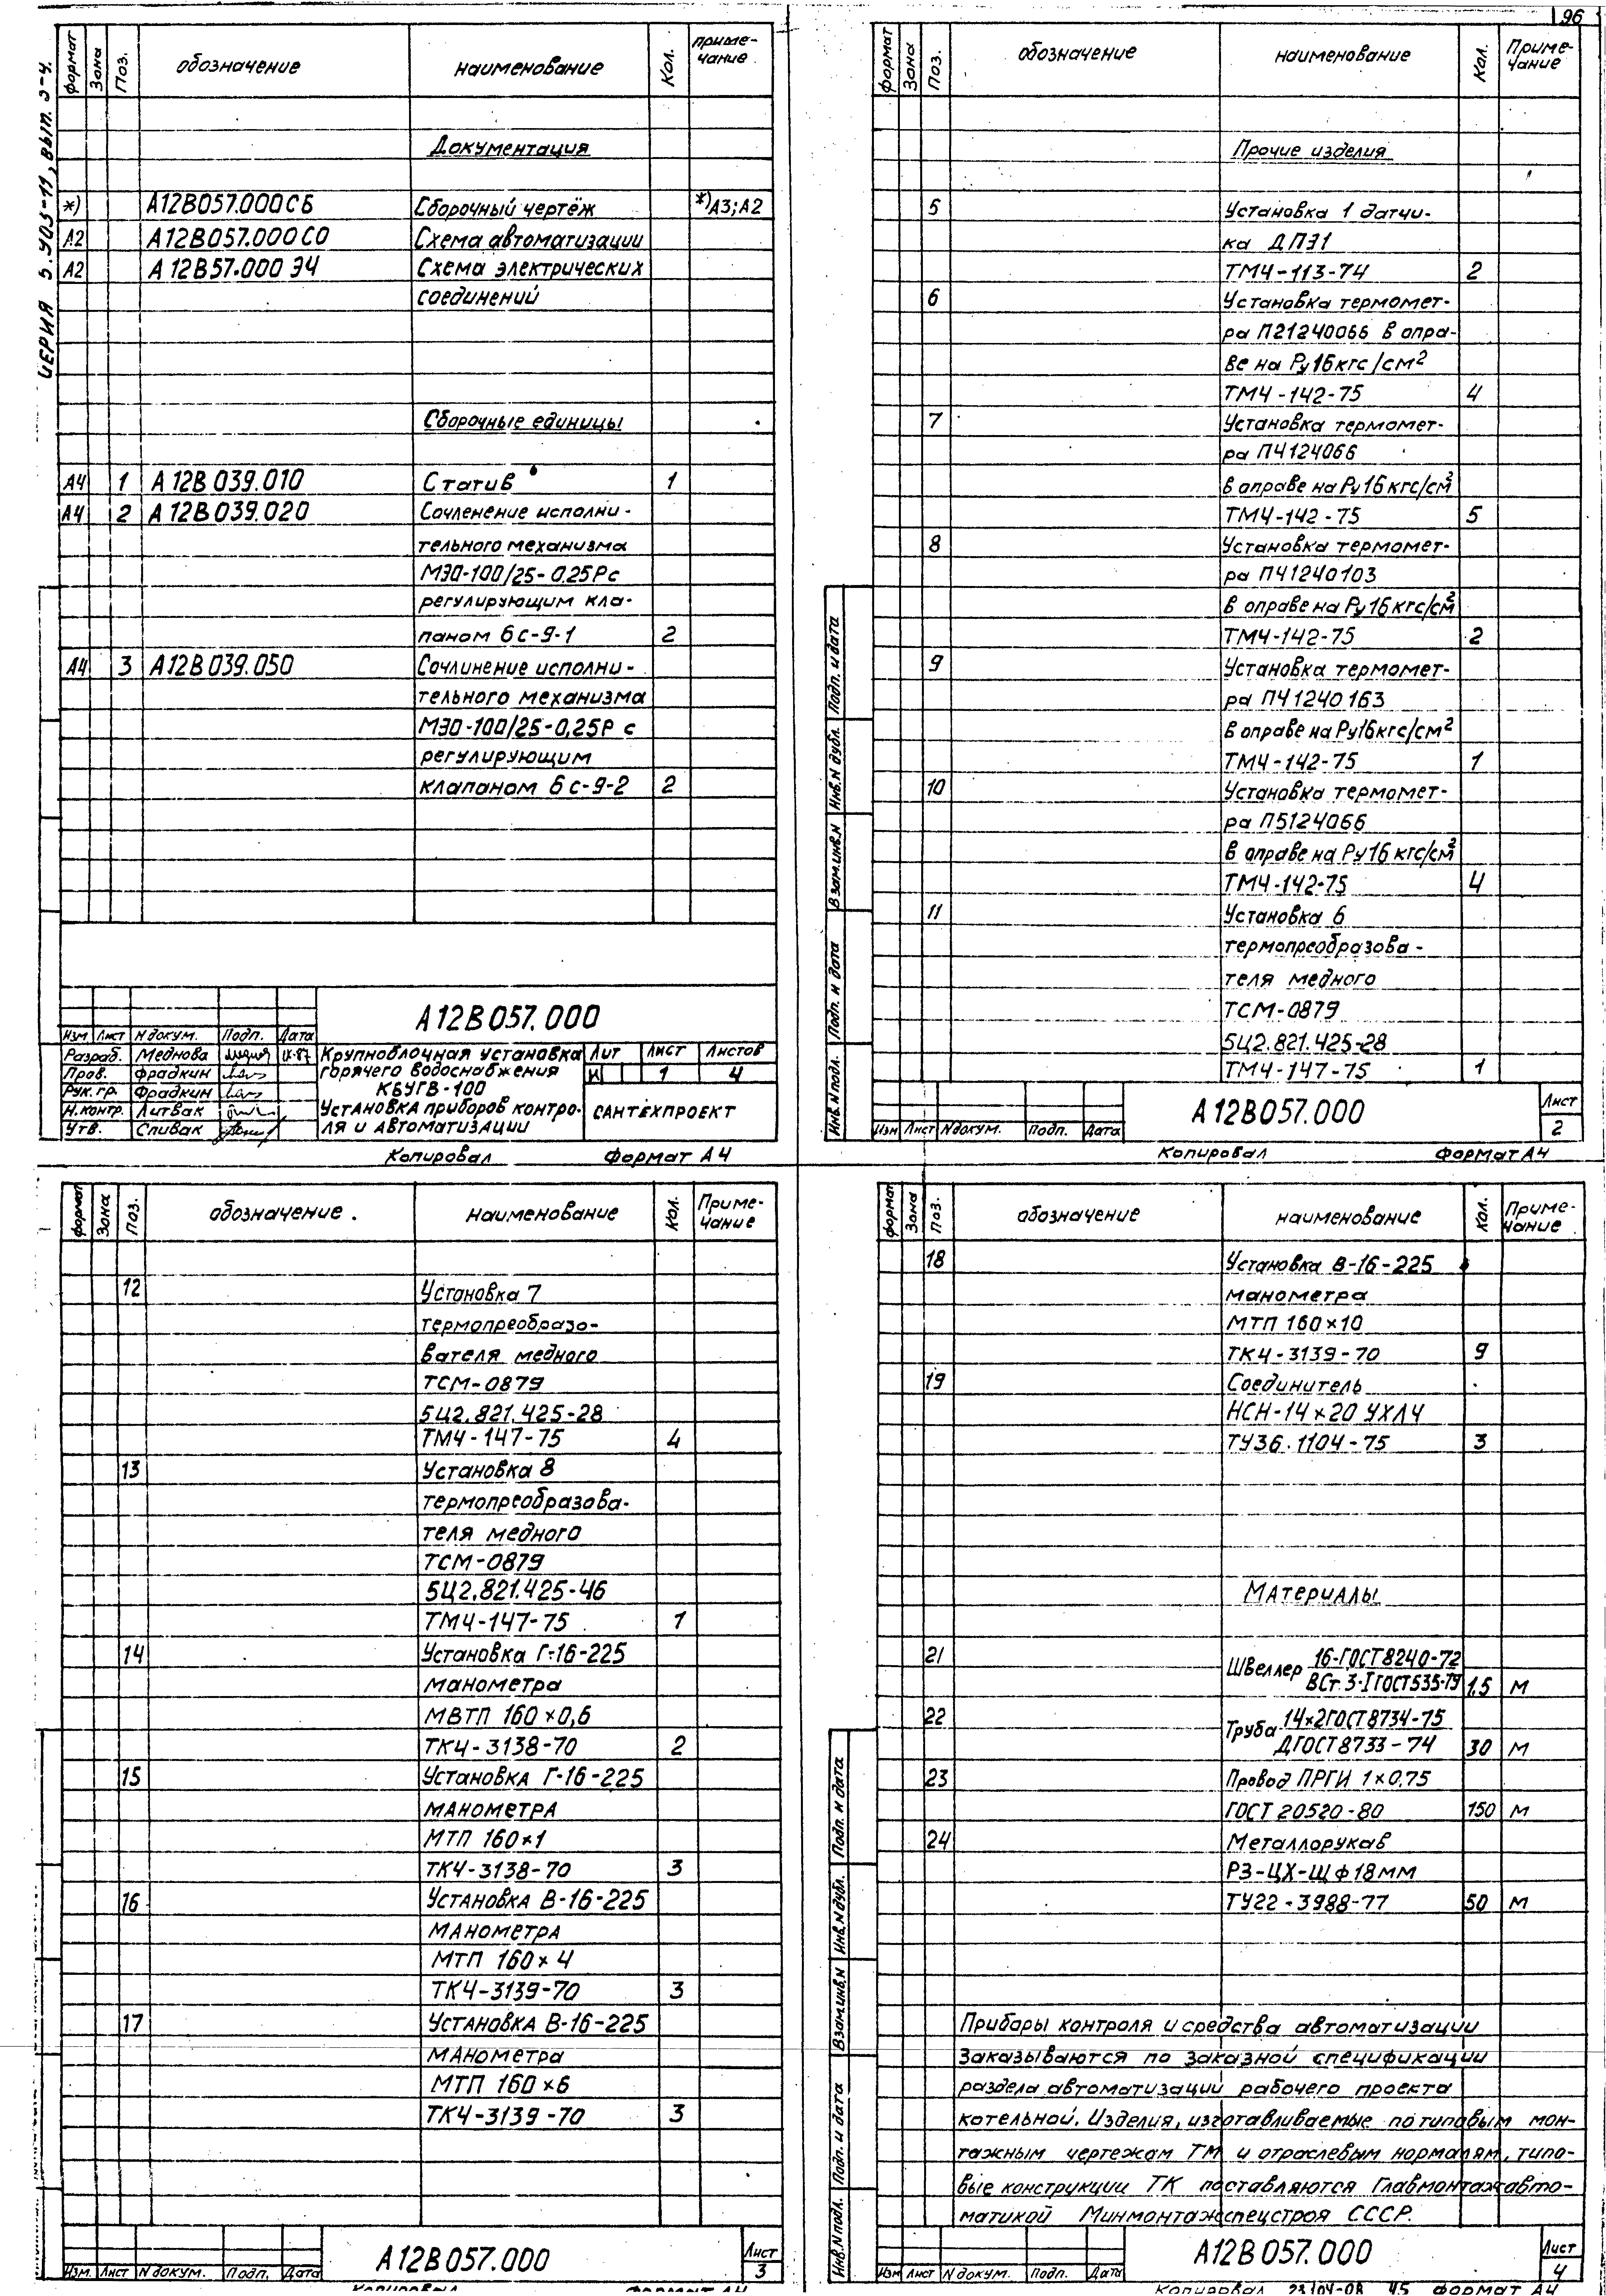 96
СЕРИЯ 5.903-11, вып. 3-4.
формат Зона Поз. обозначение наименование Кол. приме-
чание
Документация
*) А12В057.000СБ Сборочный чертёж *)А3;А2
А2 А12В057.000СО Схема автоматизации
А2 А12В57.000 Э4 Схема электрических
соединений
Сборочные единицы
А4 1 А12В039.010 Статив 1
А4 2 А12В039.020 Сочленение исполни-
тельного механизма
МЭО-100/25-0,25Р с
регулирующим кла-
паном 6с-9-1 2
А4 3 А12В039.050 Сочлинение исполни-
тельного механизма
МЭО-100/25-0,25Р с
регулирующим
клапаном 6с-9-2 2
А12В057.000
Изм Лист N докум. Подп. Дата
Разраб. Меднова IX-87
Пров. Фрадкин
Рук.гр. Фрадкин
Н.контр. Литвак
Утв. Спивак
Крупноблочная установка
горячего водоснабжения
КБУГВ-100
Установка приборов контро-
ля и автоматизации
Лит Лист Листов
И 1 4
САНТЕХПРОЕКТ
Копировал Формат А4
формат Зона Поз. обозначение наименование Кол. Приме-
чание
Прочие изделия
5 Установка 1 датчи-
ка ДПЭ1
ТМ4-113-74 2
6 Установка термомет-
ра П21240066 в опра-
ве на Ру16кгс/см2
ТМ4-142-75 4
7 Установка термомет-
ра П4124066
в оправе на Ру16кгс/см2
ТМ4-142-75 5
8 Установка термомет-
ра П41240103
в оправе на Ру16кгс/см2
ТМ4-142-75 2
9 Установка термомет-
ра П41240163
в оправе на Ру16кгс/см2
ТМ4-142-75 1
10 Установка термомет-
ра П5124066
в оправе на Ру16кгс/см2
ТМ4-142-75 4
11 Установка 6
термопреобразова-
теля медного
ТСМ-0879
5Ц2.821.425-28
ТМ4-147-75 1
Инв.N подл. Подп. и дата Взам.инв.N Инв.N дубл. Подп. и дата
А12В057.000
Изм Лист N докум. Подп. Дата
Лист
2
Копировал Формат А4
формат Зона Поз. обозначение наименование Кол. Приме-
чание
12 Установка 7
термопреобразо-
вателя медного
ТСМ-0879
5Ц2.821.425-28
ТМ4-147-75 4
13 Установка 8
термопреобразова-
теля медного
ТСМ-0879
5Ц2.821.425-46
ТМ4-147-75 1
14 Установка Г-16-225
манометра
МВТП 160×0,6
ТК4-3138-70 2
15 Установка Г-16-225
манометра
МТП 160×1
ТК4-3138-70 3
16 Установка В-16-225
манометра
МТП 160×4
ТК4-3139-70 3
17 Установка В-16-225
манометра
МТП 160×6
ТК4-3139-70 3
А12В057.000
Изм. Лист N докум. Подп. Дата
Лист
3
Копировал Формат А4
формат Зона Поз. обозначение наименование Кол. Приме-
чание
18 Установка В-16-225
манометра
МТП 160×10
ТК4-3139-70 9
19 Соединитель
НСН-14×20 УХЛ4
ТУ36.1104-75 3
Материалы
21 Швеллер 16-ГОСТ8240-72
ВСт.3-IГОСТ535-79 1,5 м
22 Труба 14×2ГОСТ8734-75
ДГОСТ8733-74 30 м
23 Провод ПРГИ 1×0,75
ГОСТ 20520-80 150 м
24 Металлорукав
РЗ-ЦХ-Щ ф18мм
ТУ22-3988-77 50 м
Приборы контроля и средства автоматизации
заказываются по заказной спецификации
раздела автоматизации рабочего проекта
котельной. Изделия, изготавливаемые по типовым мон-
тажным чертежам ТМ и отраслевым нормалям, типо-
вые конструкции ТК поставляются Главмонтажавто-
матикой Минмонтажспецстроя СССР.
Инв.N подл. Подп. и дата Взам.инв.N Инв.N дубл. Подп. и дата
А12В057.000
Изм Лист N докум. Подп. Дата
Лист
4
Копировал 23104-08 45 Формат А4